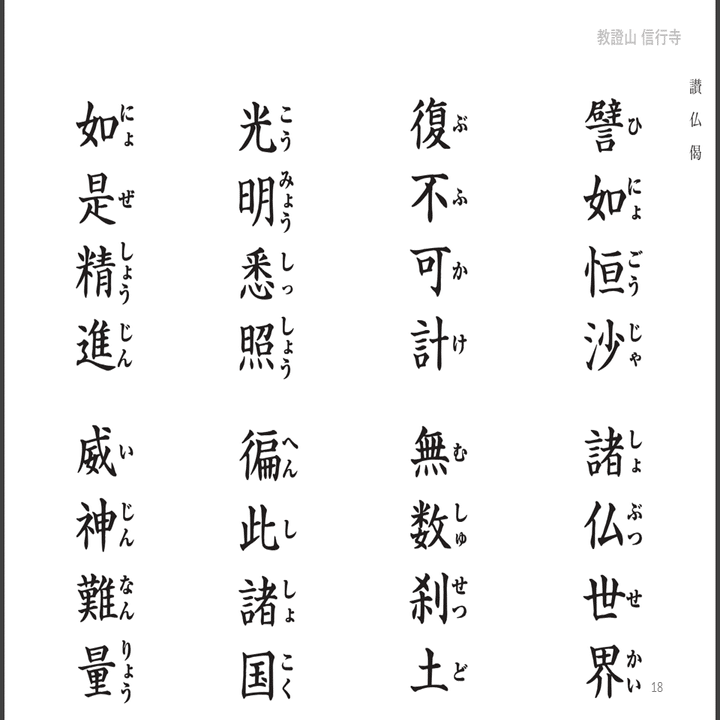 教證山 信行寺
讃仏偈
譬如恒沙 諸仏世界
ひにょごうじゃ しょぶつせかい
復不可計 無数刹土
ぶふかけ むしゅせつど
光明悉照 徧此諸国
こうみょうしっしょう へんししょこく
如是精進 威神難量
にょぜしょうじん いじんなんりょう
18